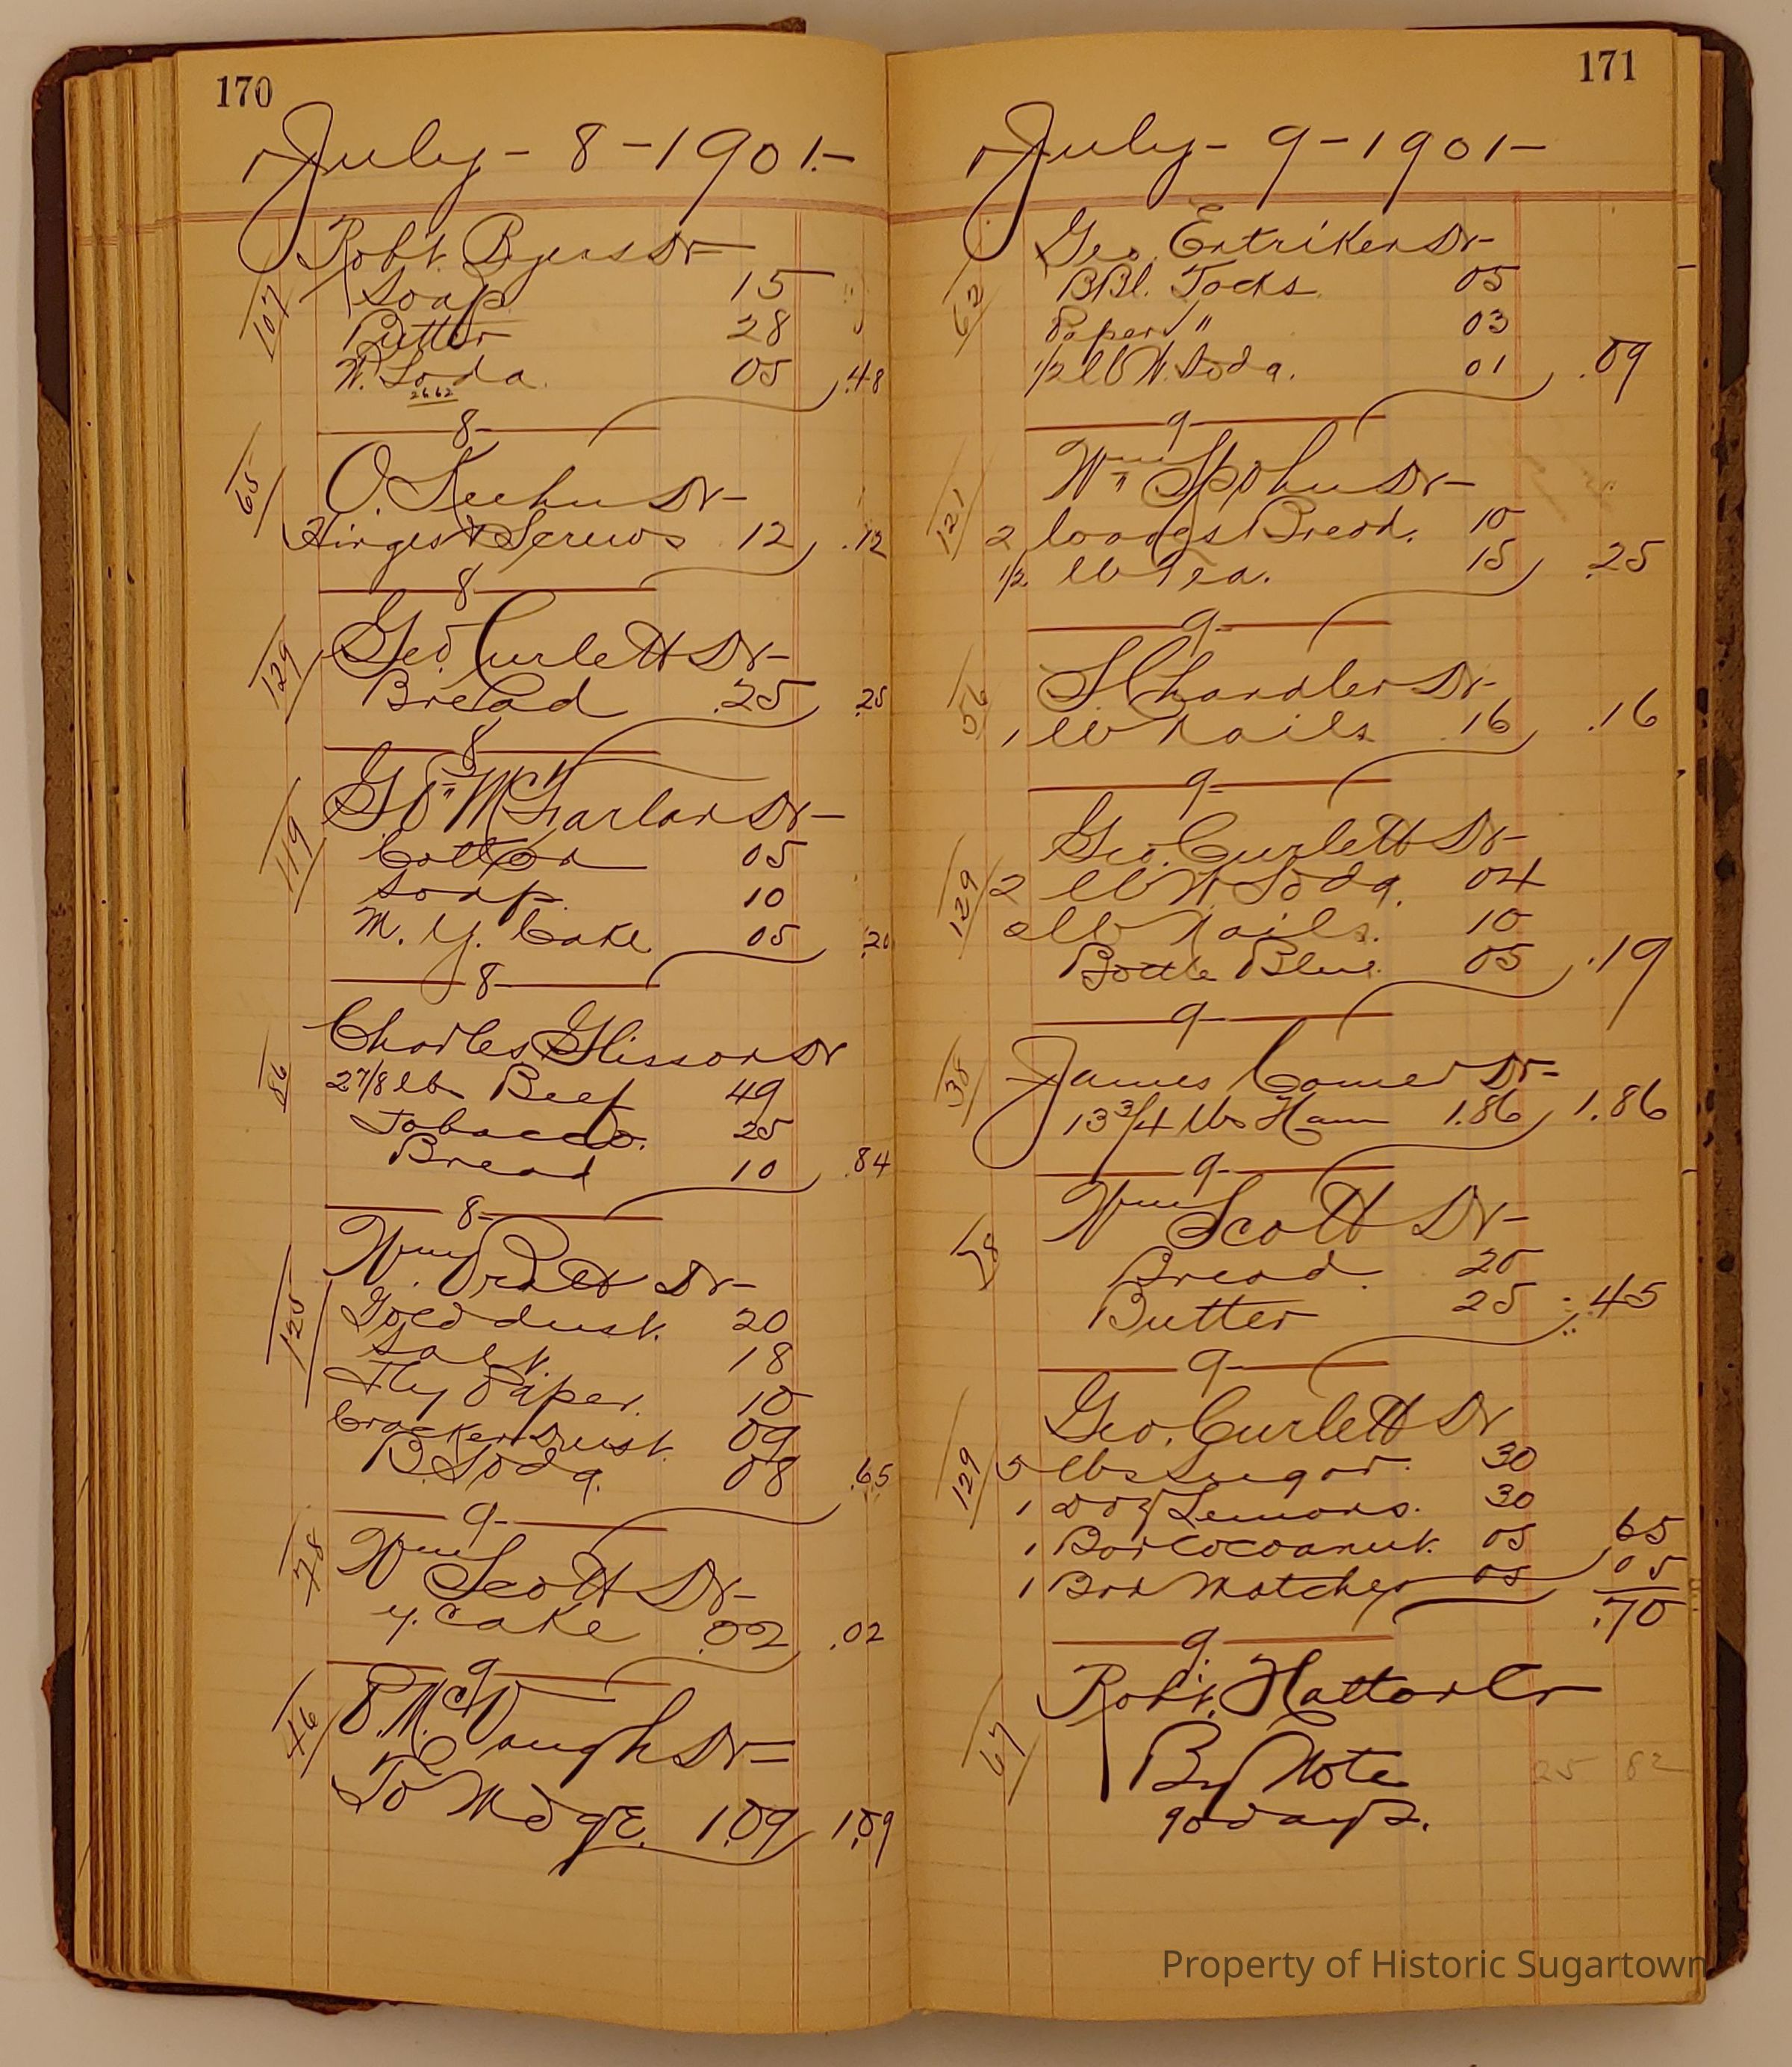 170
July - 8 - 1901.-
107
Robt. Byers Dr
Soap 15
Butter 28
W. Soda 05 .48
2662
8-
65
O. Keehn Dr -
Hinges & Screws 12 .12
8
129
Geo. Curlett Dr -
Bread .25 .25
8
119
McFarlan Dr -
Cotton 05
Soap 10
M. Y. Cake 05 .20
8-
86
Charles Glisson Dr
2 7/8 lb Beef 49
Tobacco. 25
Bread 10 .84
8-
125
Wm. Pratt Dr -
Gold dust. 20
Salt. 18
Fly Paper. 10
Cracker Dust. 09
B. Soda. 08 .65
9-
78
Wm Scott Dr -
Y. Cake .02 .02
9
46
P. McVaugh Dr =
To Mdge. 1.09 1.09
171
July - 9 - 1901 -
62
Geo. Entriken Dr -
BBl. Tacks 05
Paper " 03
1/2 lb W. Soda. 01 .09
9-
121
Wm Spohn Dr -
2 loaves Bread. 10
1/2 lb Tea. 15 .25
9-
56
S. Chandler Dr -
1 lb nails 16 .16
9-
129
Geo. Curlett Dr -
2 lb W. Soda. 04
lb nails. 10
Bottle Blue. 05 .19
9-
38
James Comer Dr -
13 3/4 lbs Ham 1.86 1.86
9-
78
Wm Scott Dr -
Bread. 20
Butter 25 .45
9-
129
Geo. Curlett Dr
5 lbs Sugar. 30
1 Doz Lemons. 30
1 Box Cocoanut. 05 65
1 Box Matches 05 05
.70
9.
67
Robt. Hatton Cr
By Note 25 82
90 days.
Property of Historic Sugartown